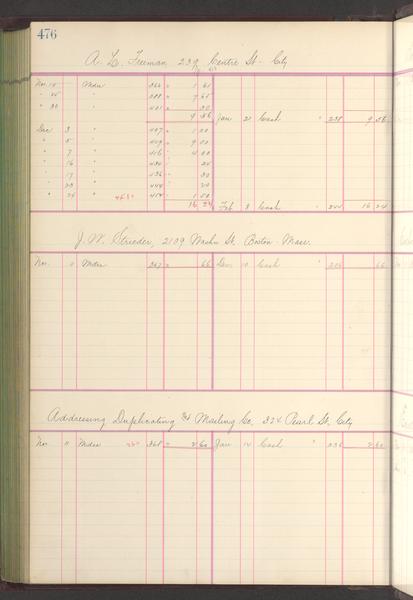 476
A. L. Freeman 239 Centre St. City
Nov. 15 Mdse 366 " 1 61
" 25 " 388 " 7 65
" 30 " 401 " 30
9 56 Jan 21 Cash " 238 9 56
Dec 3 " 407 " 1 00
" 5 " 409 " 9 00
" 7 " 416 " 4 00
" 16 " 24
" 17 " 436 " 30
" 23 " 444 " 20
" 1 50
16 24 Feb 8 Cash " 16 24
J. W. Strieder, 2109 Washn St. Boston Mass.
Nov. 11 Mdse 367 " 66 Dec 10 Cash " 66
Addressing Duplicating & Mailing Co. 324 Pearl St. City
Nov " Mdse 368 " 2 60 Jan 14 Cash " 236 2 60